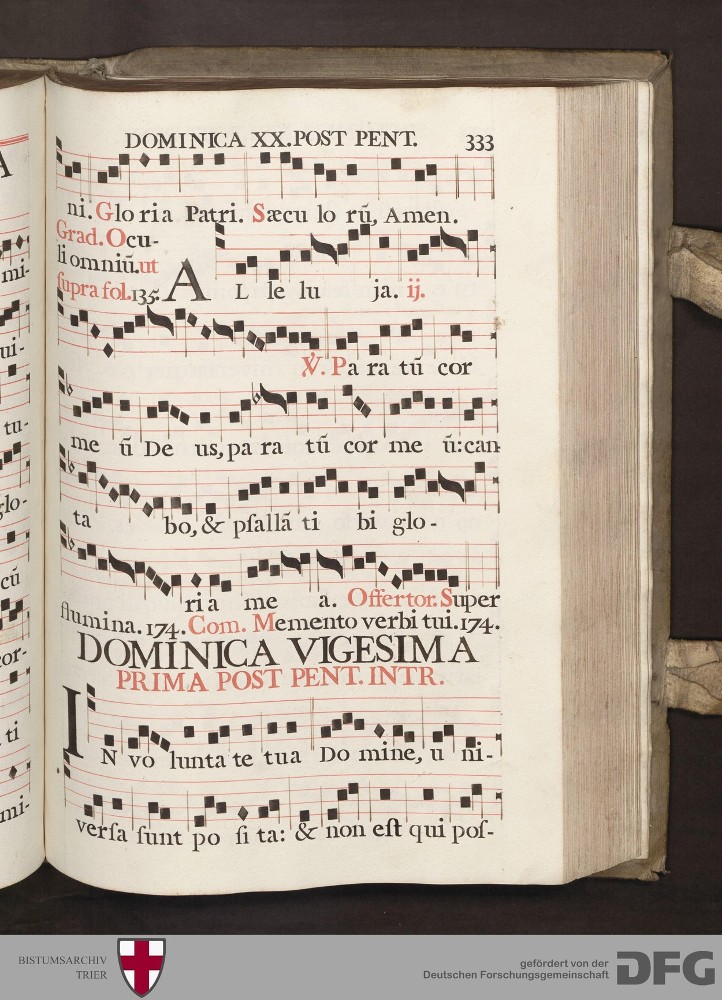 DOMINICA XX. POST PENT. 333
ni. Gloria Patri. Sæcu lo rū, Amen.
Grad. Ocu-
li omniū. ut
ſupra fol. 135. A L le lu ja. ij.
℣. Pa ra tū cor
me ū De us, pa ra tū cor me ū: can
ta bo, & pſallā ti bi glo-
ri a me a. Offertor. Super
flumina. 174. Com. Memento verbi tui. 174.
DOMINICA VIGESIMA
PRIMA POST PENT. INTR.
IN vo lunta te tua Do mine, u ni-
verſa ſunt po ſi ta: & non eſt qui poſ-
A
mi-
ui-
tu-
glo-
cū
cor-
ti
mi-
BISTUMSARCHIV
TRIER
gefördert von der
Deutschen Forschungsgemeinschaft
DFG